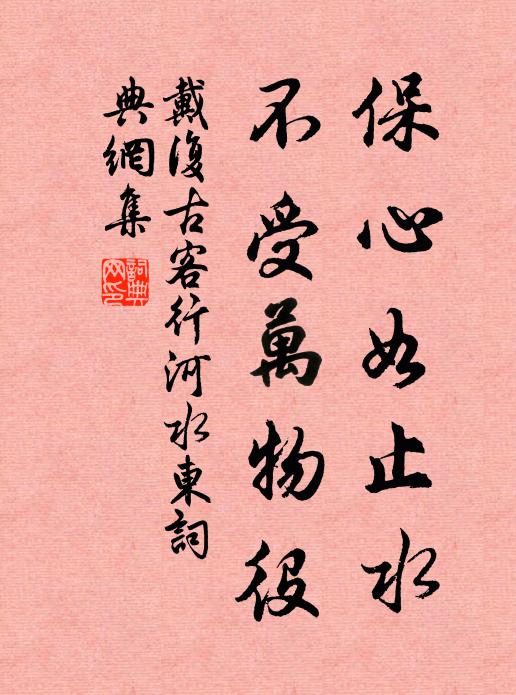 保心如止水
不受萬物役
戴復古客行河水東詞
典網集
詞典網印